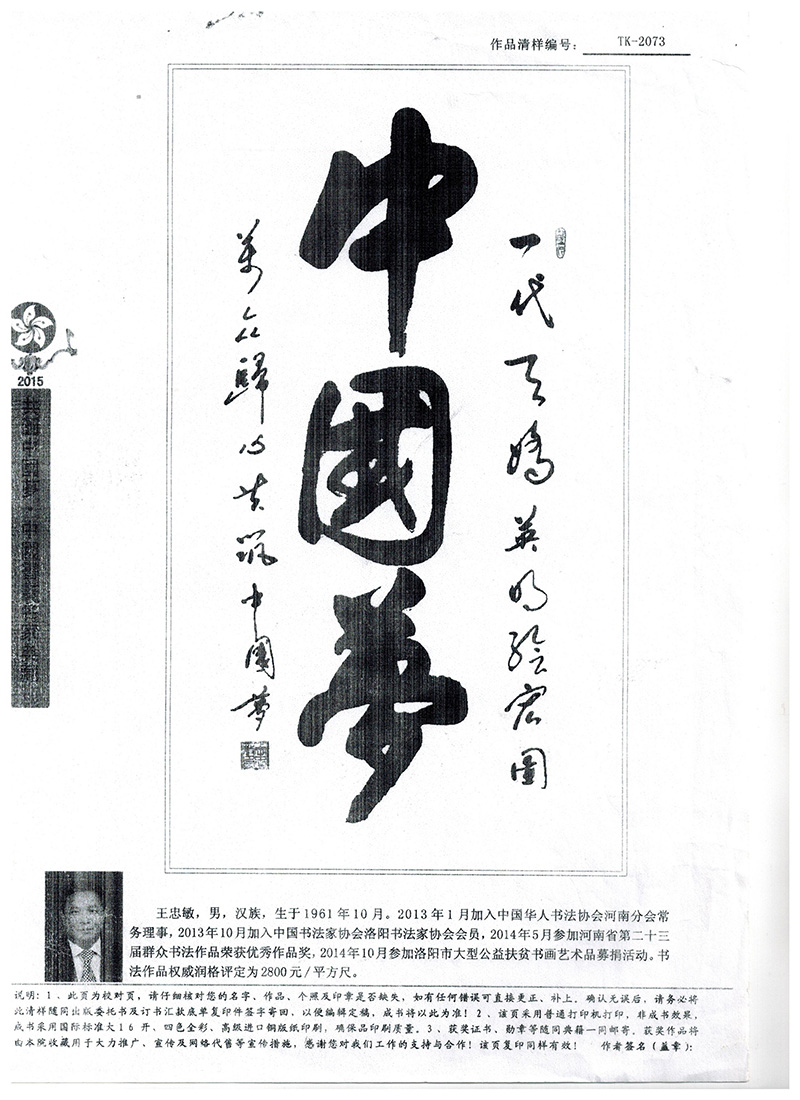 作品清样编号: TK-2073
一代天骄英明绘宏图
中國夢
萬众歸心共筑中國夢
2015
王忠敏，男，汉族，生于1961年10月。2013年1月加入中国华人书法协会河南分会常
务理事，2013年10月加入中国书法家协会洛阳书法家协会会员，2014年5月参加河南省第二十三
届群众书法作品荣获优秀作品奖，2014年10月参加洛阳市大型公益扶贫书画艺术品募捐活动。书
法作品权威润格评定为2800元/平方尺。
说明：1、此页为校对页，请仔细核对您的名字、作品、个照及印章是否缺失，如有任何错误可直接更正、补上。确认无误后，请务必将
此清样随同出版委托书及订书汇款底单复印件签字寄回，以便编辑定稿，成书将以此为准！2、该页采用普通打印机打印，非成书效果，
成书采用国际标准大16开、四色全彩、高级进口铜版纸印刷，确保品印刷质量。3、获奖证书、勋章等随同典籍一同邮寄。获奖作品将
由本院收藏用于大力推广、宣传及网络代售等宣传措施，感谢您对我们工作的支持与合作！该页复印同样有效！ 作者签名（盖章）：